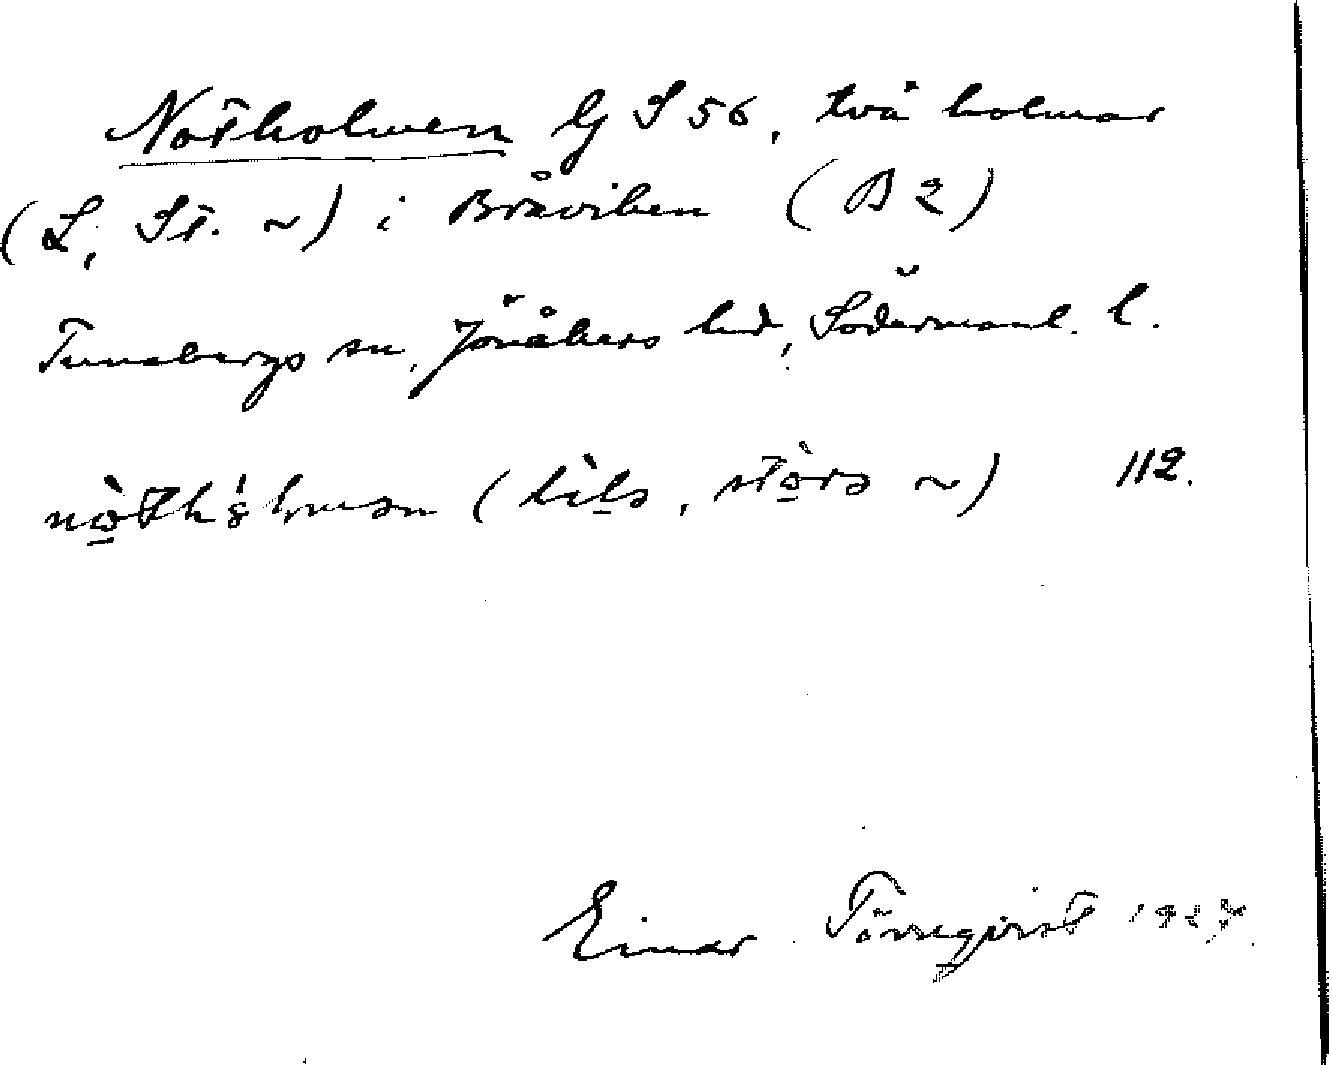 Notholmen G S 56, två holmar
(L, St. ~) i Bråviken (B 2)
Tunabergs sn, Jönåkers hd, Södermanl. l.
(lìlə, stòrə ~) 112.
Einar Törnqvist 1927.